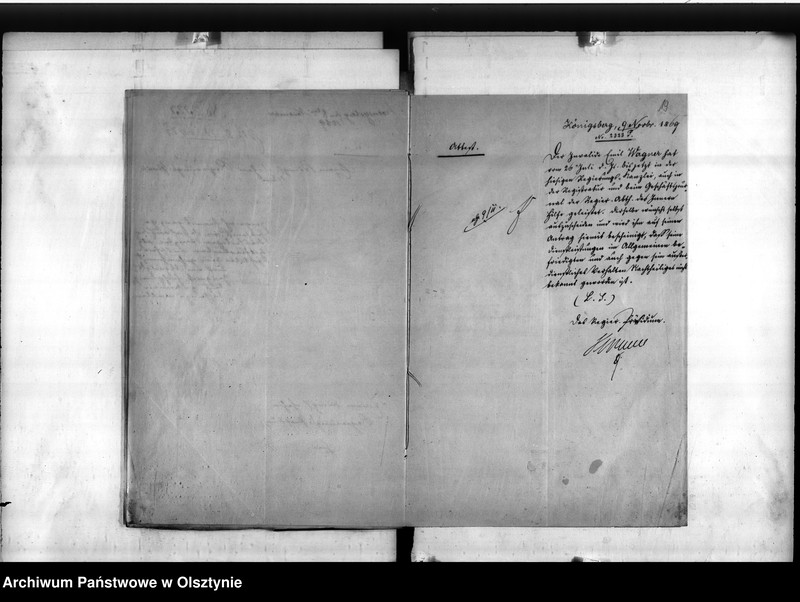 Königsberg, 9 Novbr. 1869
No. 2333 P.
Attest.
Der Invalide Emil Wagner hat
vom 26 Juli d. Js. bis jetzt in der
hiesigen Regierungs-Kanzlei, auch in
der Registratur und beim Geschäftsjour-
nal der Regier. Abth. des Innern
Hilfe geleistet. Derselbe wünscht selbst
auszuscheiden und wird ihm auf seinen
Antrag hiermit bescheinigt, daß seine
Dienstleistungen im Allgemeinen be-
friedigten und auch gegen sein außer-
dienstliches Verhalten Nachtheiliges nicht
bekannt geworden ist.
(L. S.)
Das Regier. Präsidium.
Archiwum Państwowe w Olsztynie